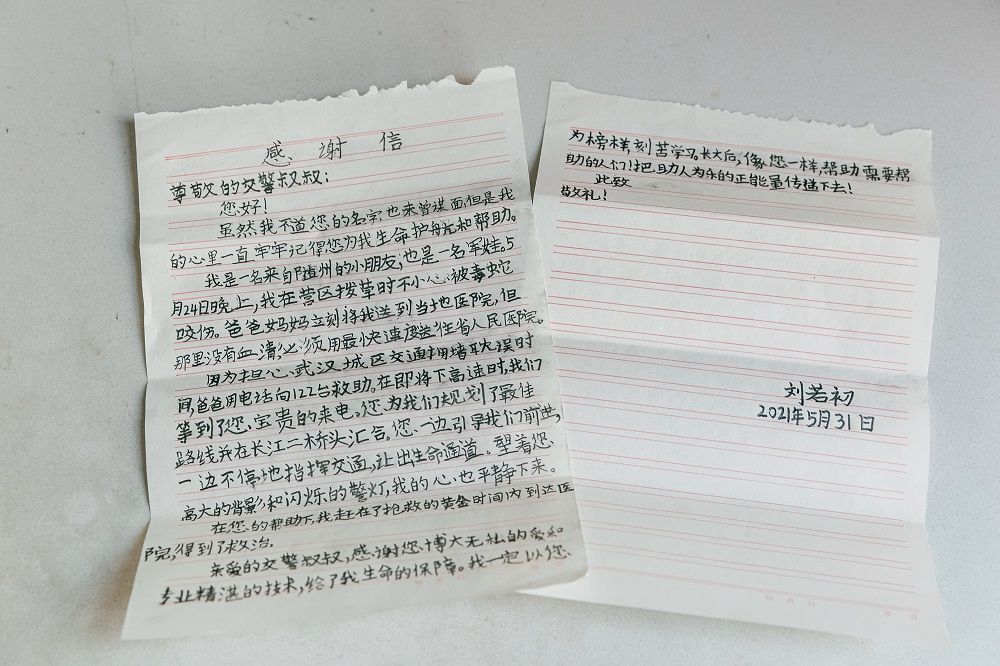 感谢信
尊敬的交警叔叔：
您好！
虽然我不道您的名字，也未曾谋面，但是我
的心里一直牢牢记得您为我生命护航和帮助。
我是一名来自随州的小朋友，也是一名军娃。5
月24日晚上，我在营区拨草时不小心被毒蛇
咬伤。爸爸妈妈立刻将我送到当地医院，但
那里没有血清，必须用最快速度送往省人民医院。
因为担心武汉城区交通拥堵耽误时
间，爸爸用电话向122台救助，在即将下高速时，我们
等到了您宝贵的来电。您为我们规划了最佳
路线并在长江二桥头汇合。您一边引导我们前进，
一边不停地指挥交通，让出生命通道。望着您
高大的背影和闪烁的警灯，我的心也平静下来。
在您的帮助下，我赶在了抢救的黄金时间内到达医
院，得到了救治。
亲爱的交警叔叔，感谢您博大无私的爱和
专业精湛的技术，给了我生命的保障。我一定以您
为榜样，刻苦学习。长大后，像您一样，帮助需要帮
助的人们！把助人为乐的正能量传播下去！
此致
敬礼！
刘若初
2021年5月31日
年 月 日